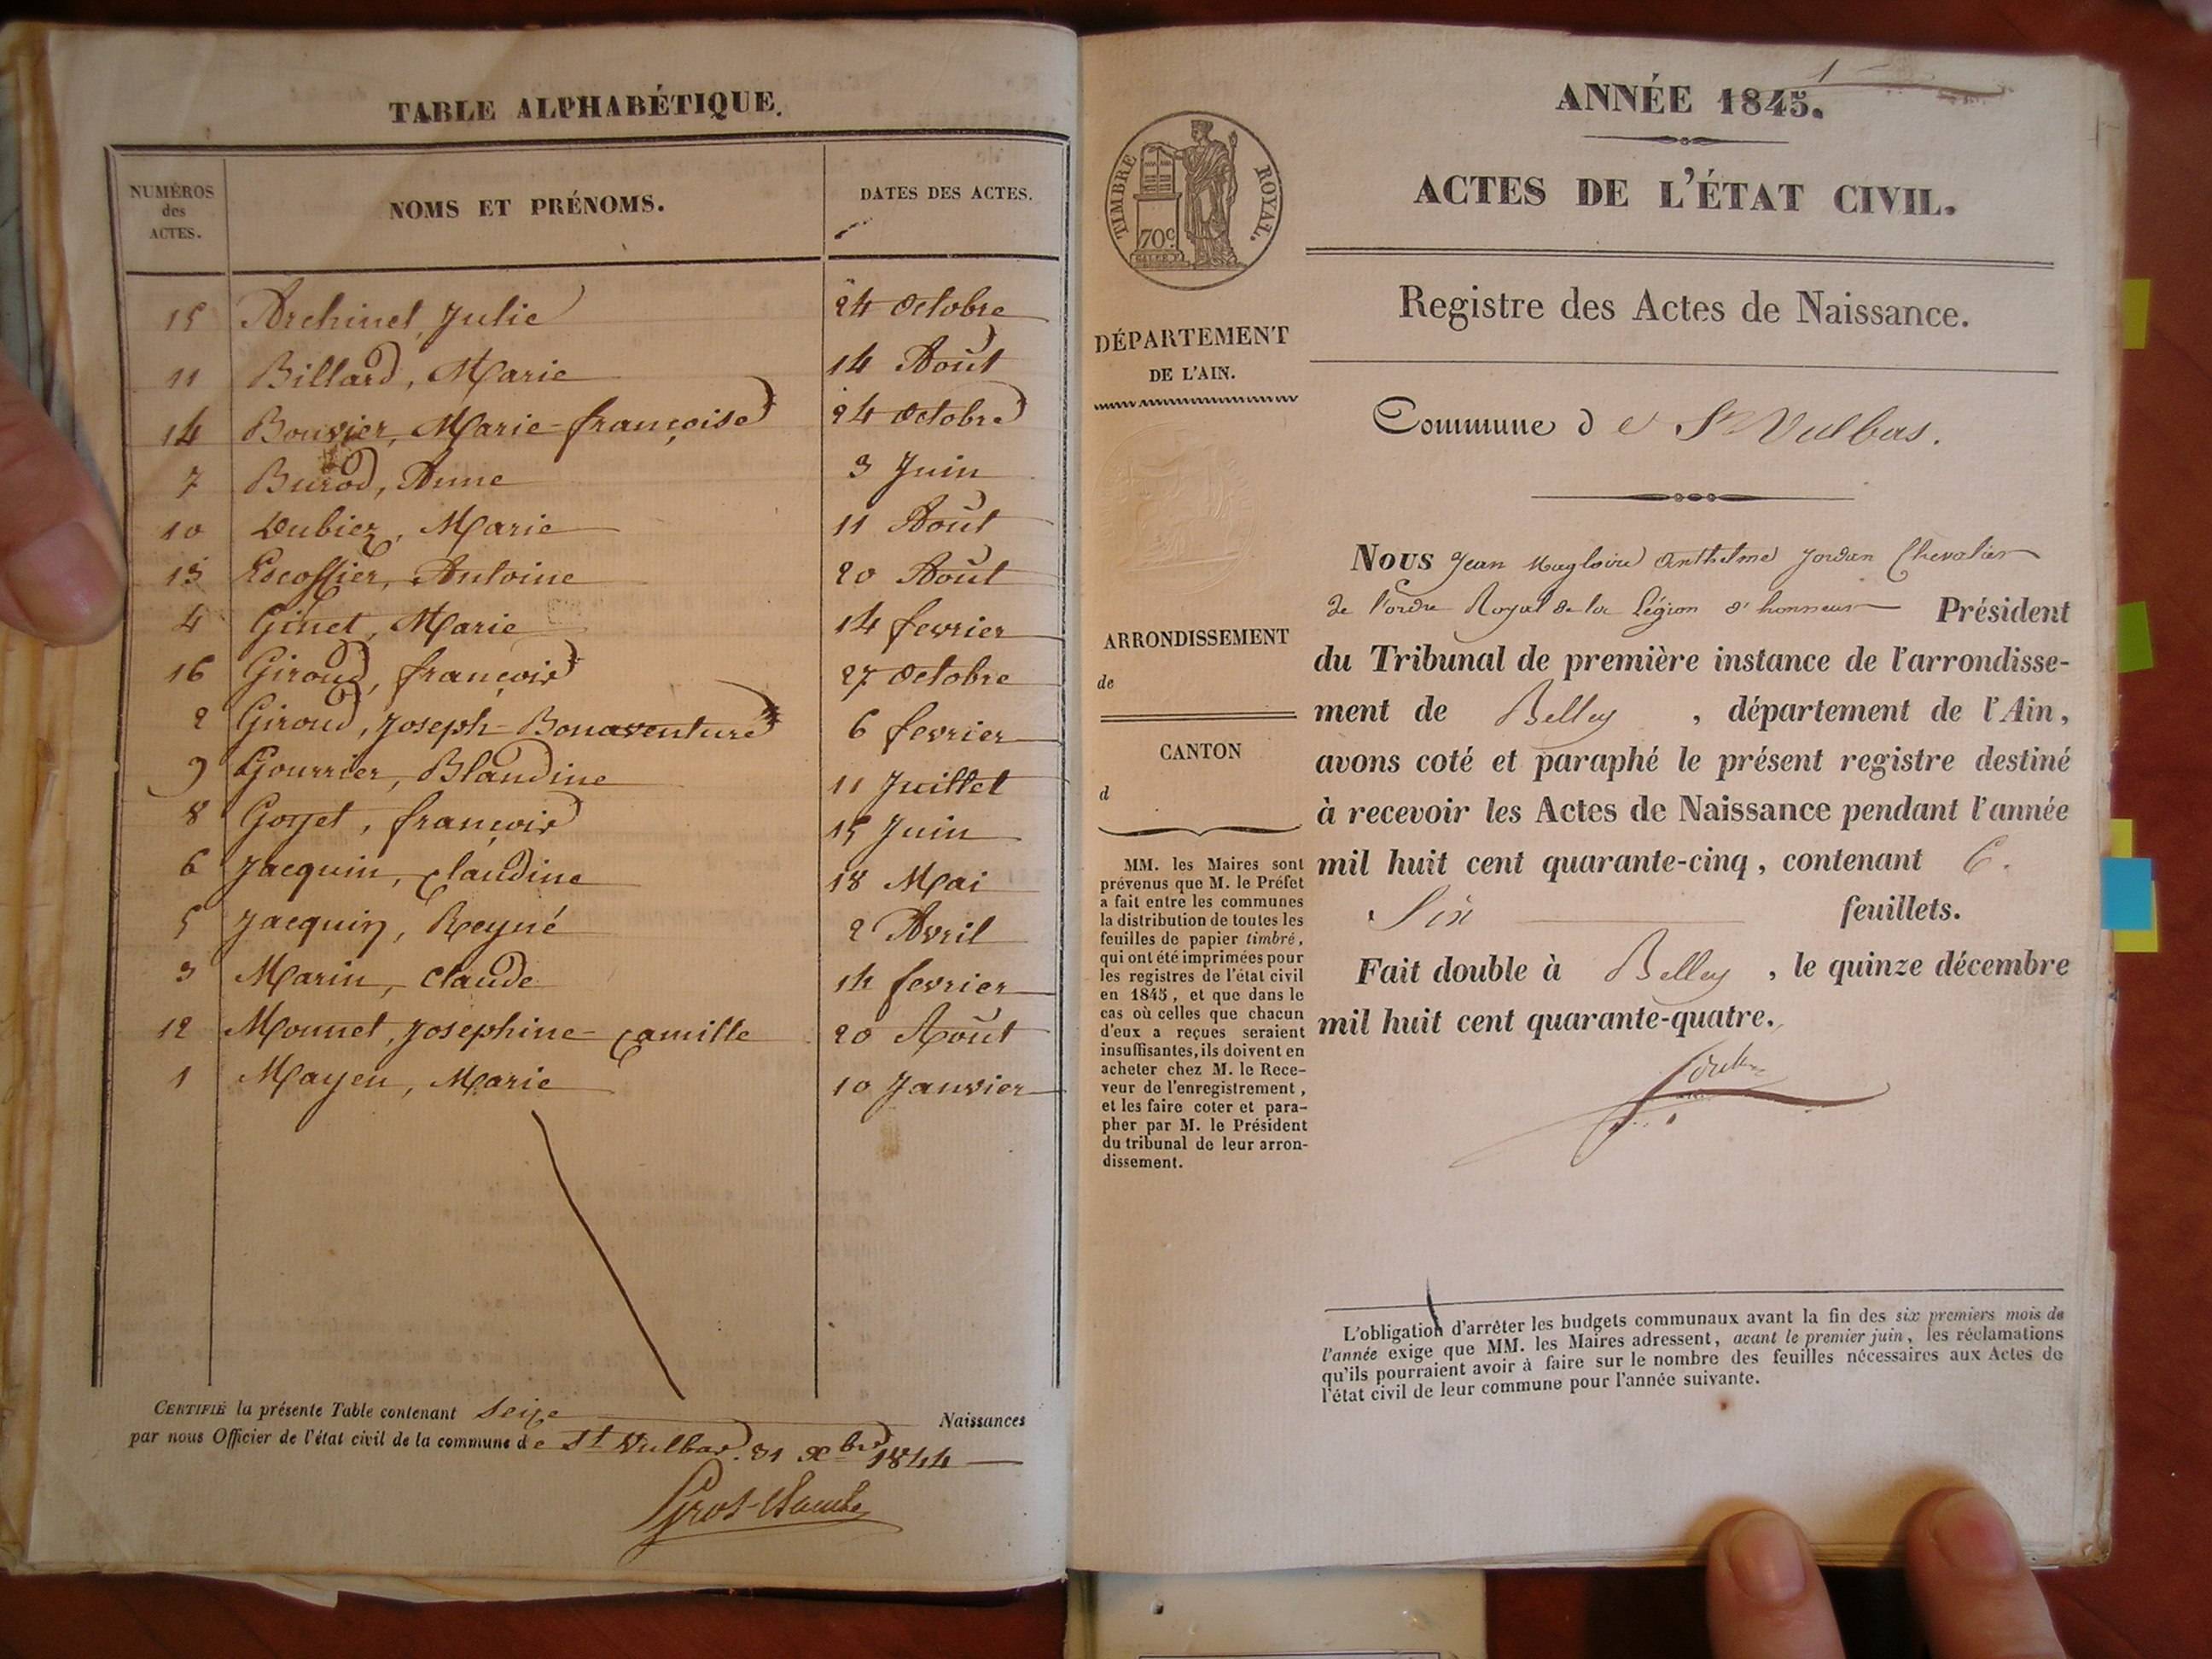 TABLE ALPHABÉTIQUE.
NUMÉROS des ACTES. NOMS ET PRÉNOMS. DATES DES ACTES.
15 Archinet, Julie 24 Octobre
11 Billard, Marie 14 Août
14 Bouvier, Marie-françoise 24 Octobre
7 Burod, Anne 3 Juin
10 Dubiez, Marie 11 Août
13 Escoffier, Antoine 20 Août
4 Ginet, Marie 14 fevrier
16 Giroud, françois 27 Octobre
2 Giroud, Joseph-Bonaventure 6 fevrier
9 Gourrier, Blandine 11 Juillet
8 Goyet, françois 15 Juin
6 Jacquin, Claudine 18 Mai
5 Jacquin, Reyné 2 Avril
3 Marin, Claude 14 fevrier
12 Monnet, Josephine-Camille 20 Août
1 Mayen, Marie 10 Janvier
CERTIFIÉ la présente Table contenant Seize Naissances
par nous Officier de l'état civil de la commune de St Vulbas. 31 Xbre 1844
1
ANNÉE 1845.
ACTES DE L'ÉTAT CIVIL.
Registre des Actes de Naissance.
Commune de St Vulbas.
TIMBRE ROYAL.
70c.
DÉPARTEMENT
DE L'AIN.
ARRONDISSEMENT
de
CANTON
d
MM. les Maires sont
prévenus que M. le Préfet
a fait entre les communes
la distribution de toutes les
feuilles de papier timbré,
qui ont été imprimées pour
les registres de l'état civil
en 1845, et que dans le
cas où celles que chacun
d'eux a reçues seraient
insuffisantes, ils doivent en
acheter chez M. le Rece-
veur de l'enregistrement,
et les faire coter et para-
pher par M. le Président
du tribunal de leur arron-
dissement.
NOUS Jean Magloire Anthelme Jordan Chevalier
de l'ordre Royal de la Légion d'honneur Président
du Tribunal de première instance de l'arrondisse-
ment de Belley, département de l'Ain,
avons coté et paraphé le présent registre destiné
à recevoir les Actes de Naissance pendant l'année
mil huit cent quarante-cinq, contenant 6.
Six feuillets.
Fait double à Belley, le quinze décembre
mil huit cent quarante-quatre.
L'obligation d'arrêter les budgets communaux avant la fin des six premiers mois de
l'année exige que MM. les Maires adressent, avant le premier juin, les réclamations
qu'ils pourraient avoir à faire sur le nombre des feuilles nécessaires aux Actes de
l'état civil de leur commune pour l'année suivante.